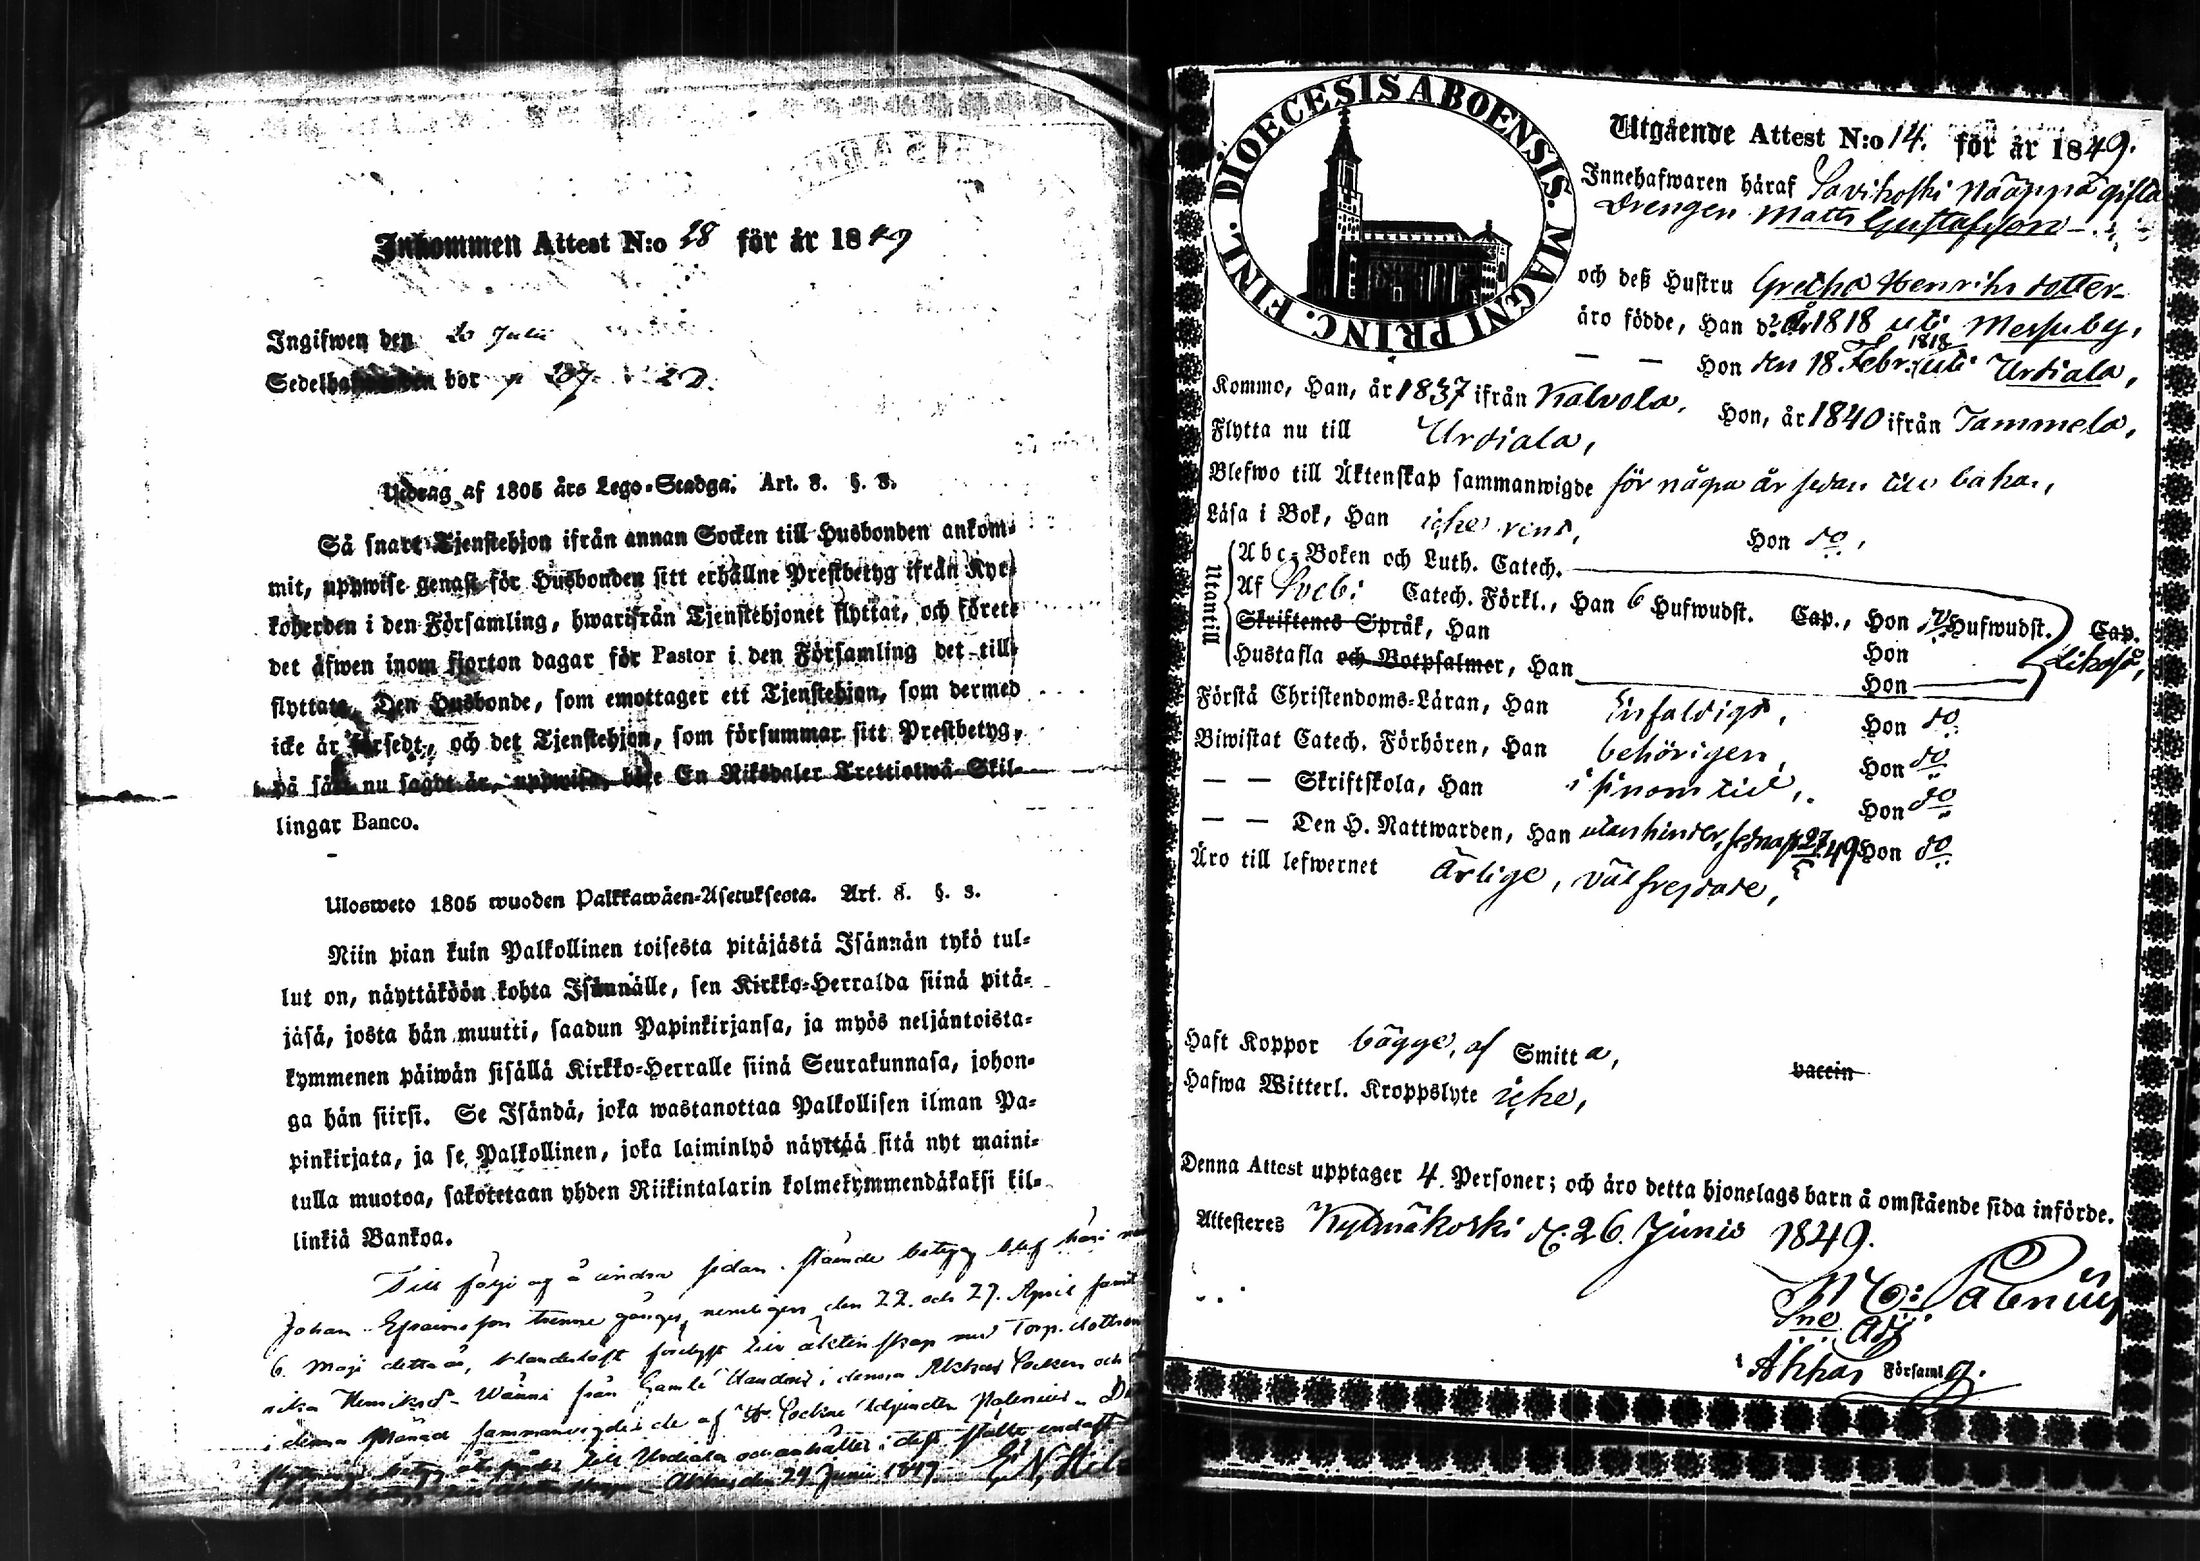 Inkommen Attest N:o 28 för år 1849
Ingifwen den 20 Julii
Sedelhafwanden bor p 287
Utdrag af 1805 års Lego-Stadga. Art. 8. §. 3.
Så snart Tjenstehjon ifrån annan Socken till Husbonden ankom-
mit, uppwise genast för Husbonden sitt erhållne Prestbetyg ifrån Kyr-
koherden i den Församling, hwarifrån Tjenstehjonet flyttat, och förete
det äfwen inom fjorton dagar för Pastor i den Församling det till-
flyttat. Den Husbonde, som emottager ett Tjenstehjon, som dermed
icke är försedt, och det Tjenstehjon, som försummar sitt Prestbetyg,
på sätt nu sagdt är, uppwisa, böte En Riksdaler Trettiotwå Skil-
lingar Banco.
Ulosweto 1805 wuoden Palkkawäen-Asetuksesta. Art. 8. §. 3.
Niin pian kuin Palkollinen toisesta pitäjästä Isännän tykö tul-
lut on, näyttäköön kohta Isännälle, sen Kirkko-Herralda siinä pitä-
jäsä, josta hän muutti, saadun Papinkirjansa, ja myös neljäntoista-
kymmenen päiwän sisällä Kirkko-Herralle siinä Seurakunnasa, johon-
ga hän siirsi. Se Isändä, joka wastanottaa Palkollisen ilman Pa-
pinkirjata, ja se Palkollinen, joka laiminlyö näyttää sitä nyt maini-
tulla muotoa, sakotetaan yhden Riikintalarin kolmekymmendäkaksi kil-
linkiä Bankoa.
Till följe af å andra sidan stående betyg blef
Johan Efraimsson trenne gånger, nemligen den 22. och 29. April samt
6. Maji detta år, till äktenskap med Torp.dottren
Henriksd. från Gamle i denna Akkas Socken och
i denna månad sammanvigde de af Sockne Adjuncten Palenius
till Urdiala och
Akkas den 24 Junii 1849
DIOECESIS ABOENSIS. MAGNI PRINC. FINL.
Utgående Attest N:o 14. för år 1849.
Innehafwaren häraf Savikoski Nääppä gifta
Drengen Matts Gustafsson
och deß Hustru Gretha Henriksdotter
äro födde, Han d. År 1818 uti Messuby,
— — Hon den 18 Febr. 1818 uti Urdiala,
Kommo, Han, år 1837 ifrån Kalvola, Hon, år 1840 ifrån Tammela,
Flytta nu till Urdiala,
Blefwo till Äktenskap sammanwigde för några år sedan tillbaka,
Läsa i Bok, Han icke rent, Hon do,
Utantill
Abc-Boken och Luth. Catech.
Af Svebi Catech. Förkl., Han 6 Hufwudst. Cap., Hon Hufwudst. Cap.
Skriftenes Språk, Han Hon likaså,
Hustafla och Botpsalmer, Han Hon
Förstå Christendoms-Läran, Han Enfaldigt, Hon do
Biwistat Catech. Förhören, Han behörigen, Hon do
— — Skriftskola, Han i sinom tid, Hon do
— — Den H. Nattwarden, Han utan hinder, Hon do
Äro till lefwernet ärlige, väl frejdade,
Haft Koppor bägge, af Smitta, vaccin
Hafwa Witterl. Kroppslyte icke,
Denna Attest upptager 4 Personer; och äro detta hjonelags barn å omstående sida införde.
Attesteres Kylmäkoski d. 26. Junii 1849.
Palenius
Sne Adj
i Akkas Församlg.